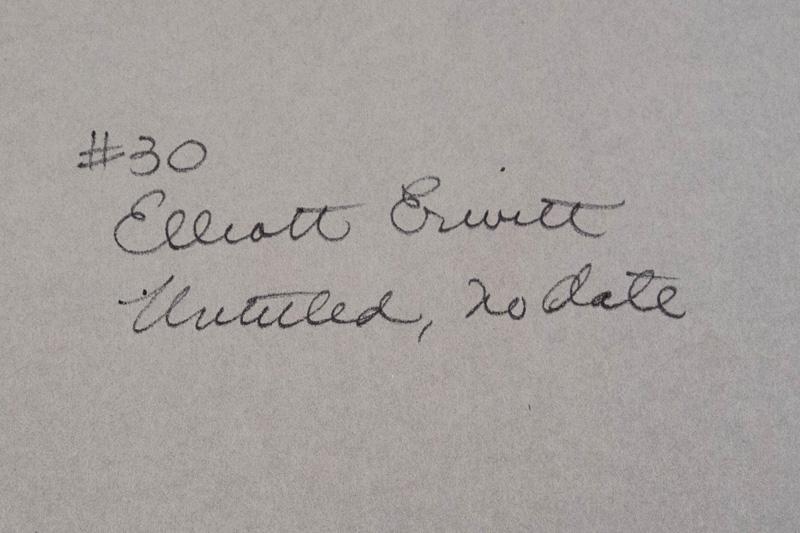 #30
Elliott Erwitt
Untitled, no date